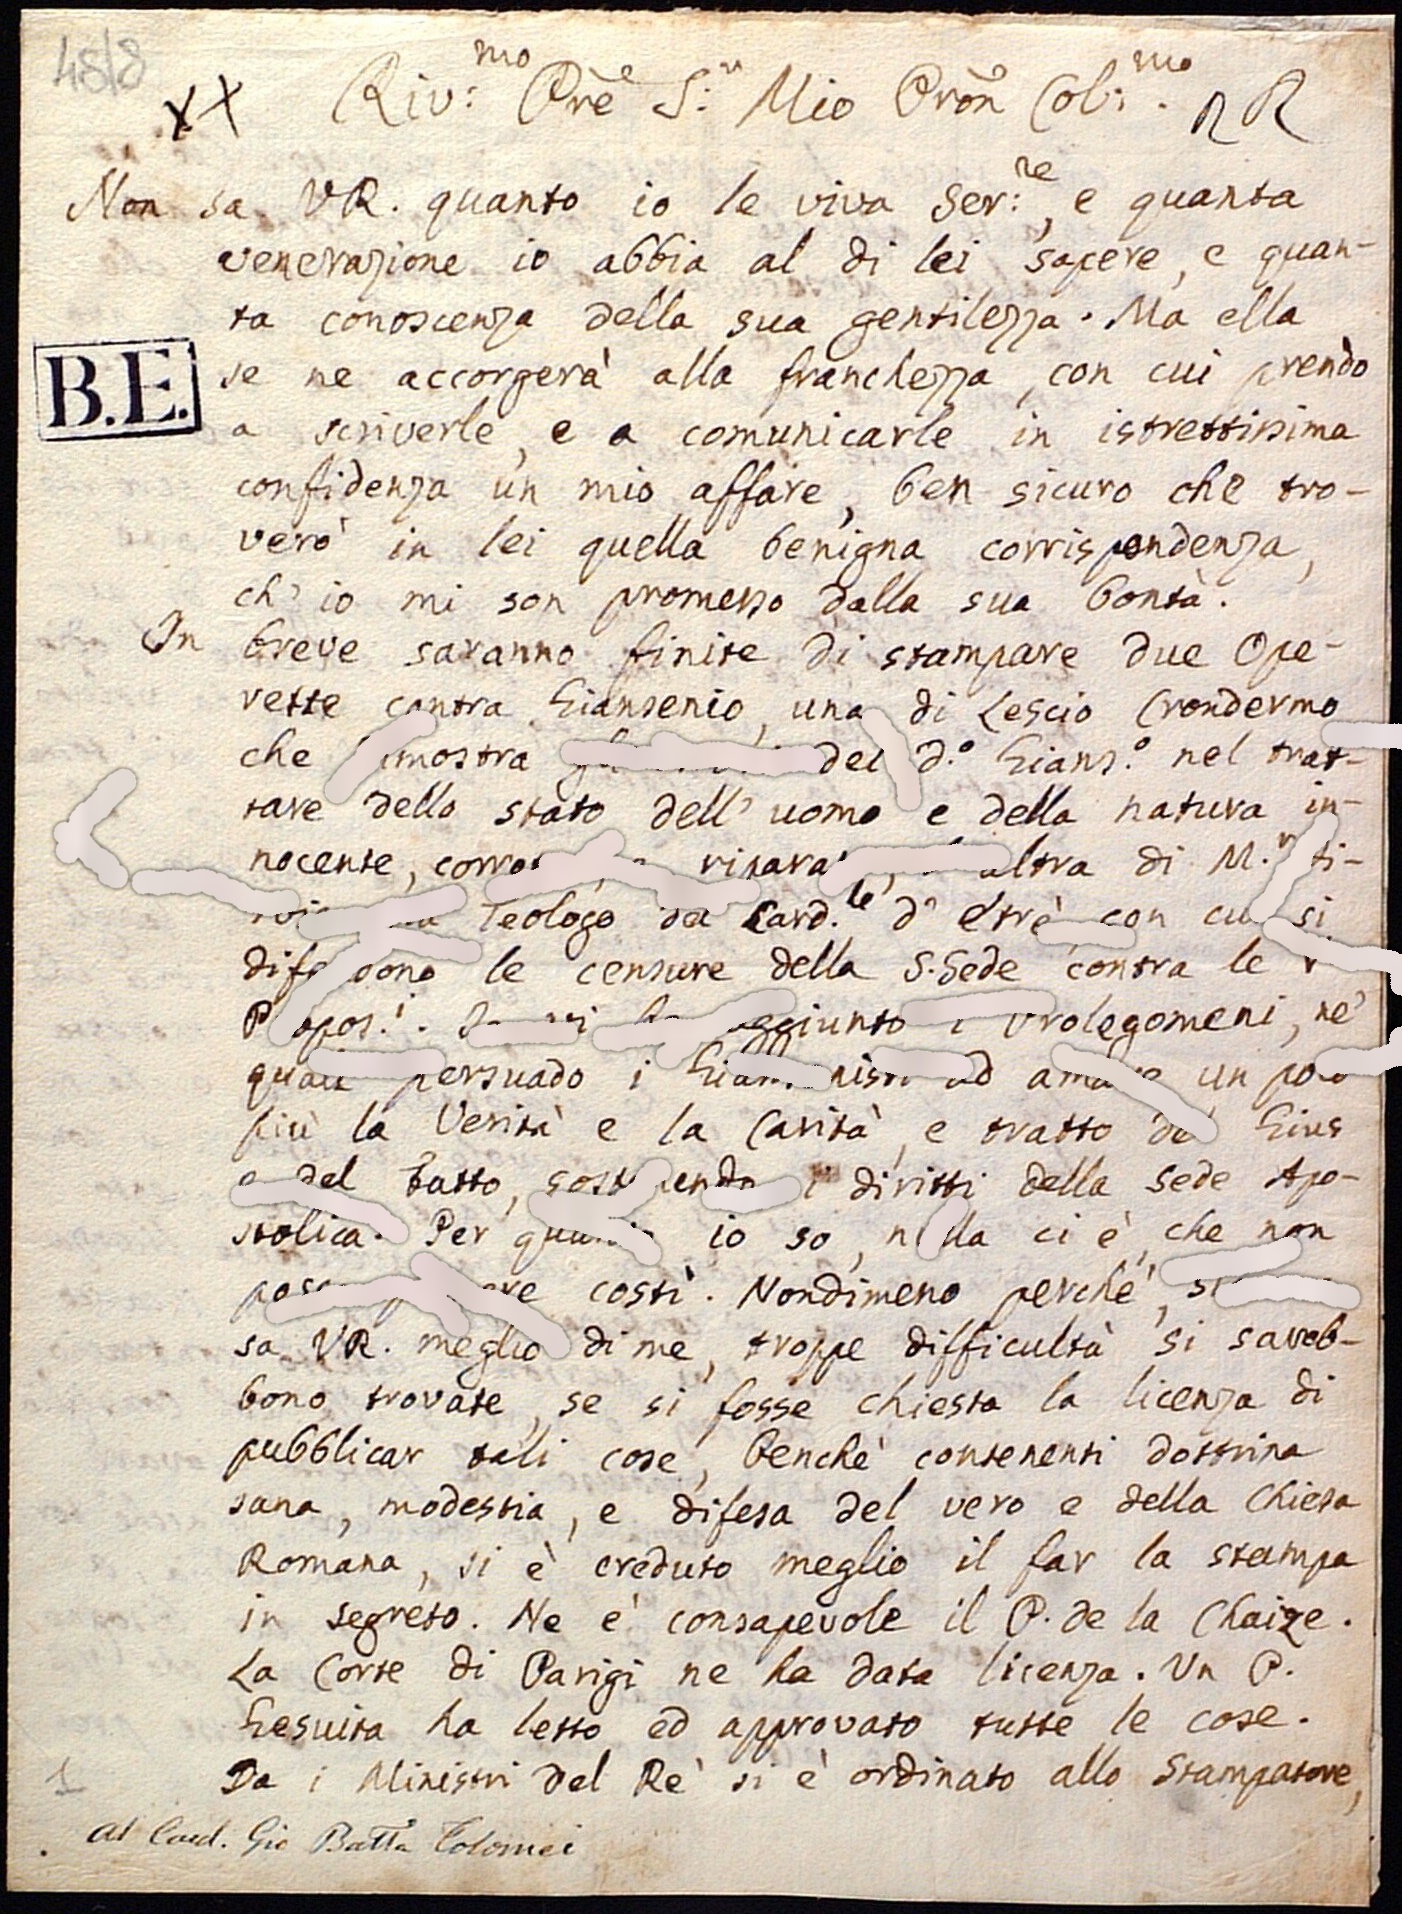 4818
XX Riv:mo Pre S:r Mio Pron Col:mo. RR
Non sa VR. quanto io le viva Ser:re, e quanta
venerazione io abbia al di lei sapere, e quan-
ta conoscenza della sua gentilezza. Ma ella
B.E.
se ne accorgerà alla franchezza, con cui prendo
a scriverle, e a comunicarle in istrettissima
confidenza un mio affare, ben sicuro che tro-
verò in lei quella benigna corrispondenza,
ch' io mi son promesso dalla sua bontà.
In breve saranno finite di stampare due Ope-
rette contra Giansenio, una di Lescio Crondermo
che del d.o Gians.o nel trat-
tare dello stato dell' uomo e della natura in-
nocente, di M.r
Teologo del Card.le d' Etrè con cui si
le censure della S. Sede contra le V
i Prolegomeni, ne'
quali persuado i ad amare un poco
più la Verità e la Carità, e tratto del Gius
e del Fatto, i diritti della Sede Apo-
stolica. Per io so, nulla ci è, che non
costì. Nondimeno perchè,
sa VR. meglio di me, troppe difficultà si sareb-
bono trovate, se si fosse chiesta la licenza di
pubblicar tali cose, benchè contenenti dottrina
sana, modestia, e difesa del vero e della Chiesa
Romana, si è creduto meglio il far la stampa
in segreto. Ne è consapevole il P. de la Chaize.
La Corte di Parigi ne ha data licenza. Un P.
Gesuita ha letto ed approvato tutte le cose.
Da i Ministri del Rè si è ordinato allo Stampatore,
1
Al Card. Gio Batta Tolomei